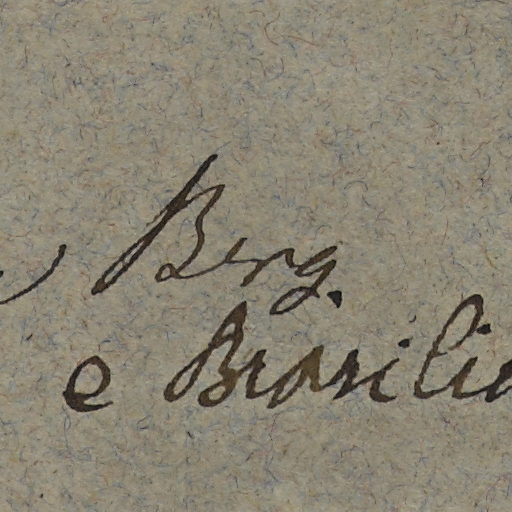 Berg.
e Brasilia